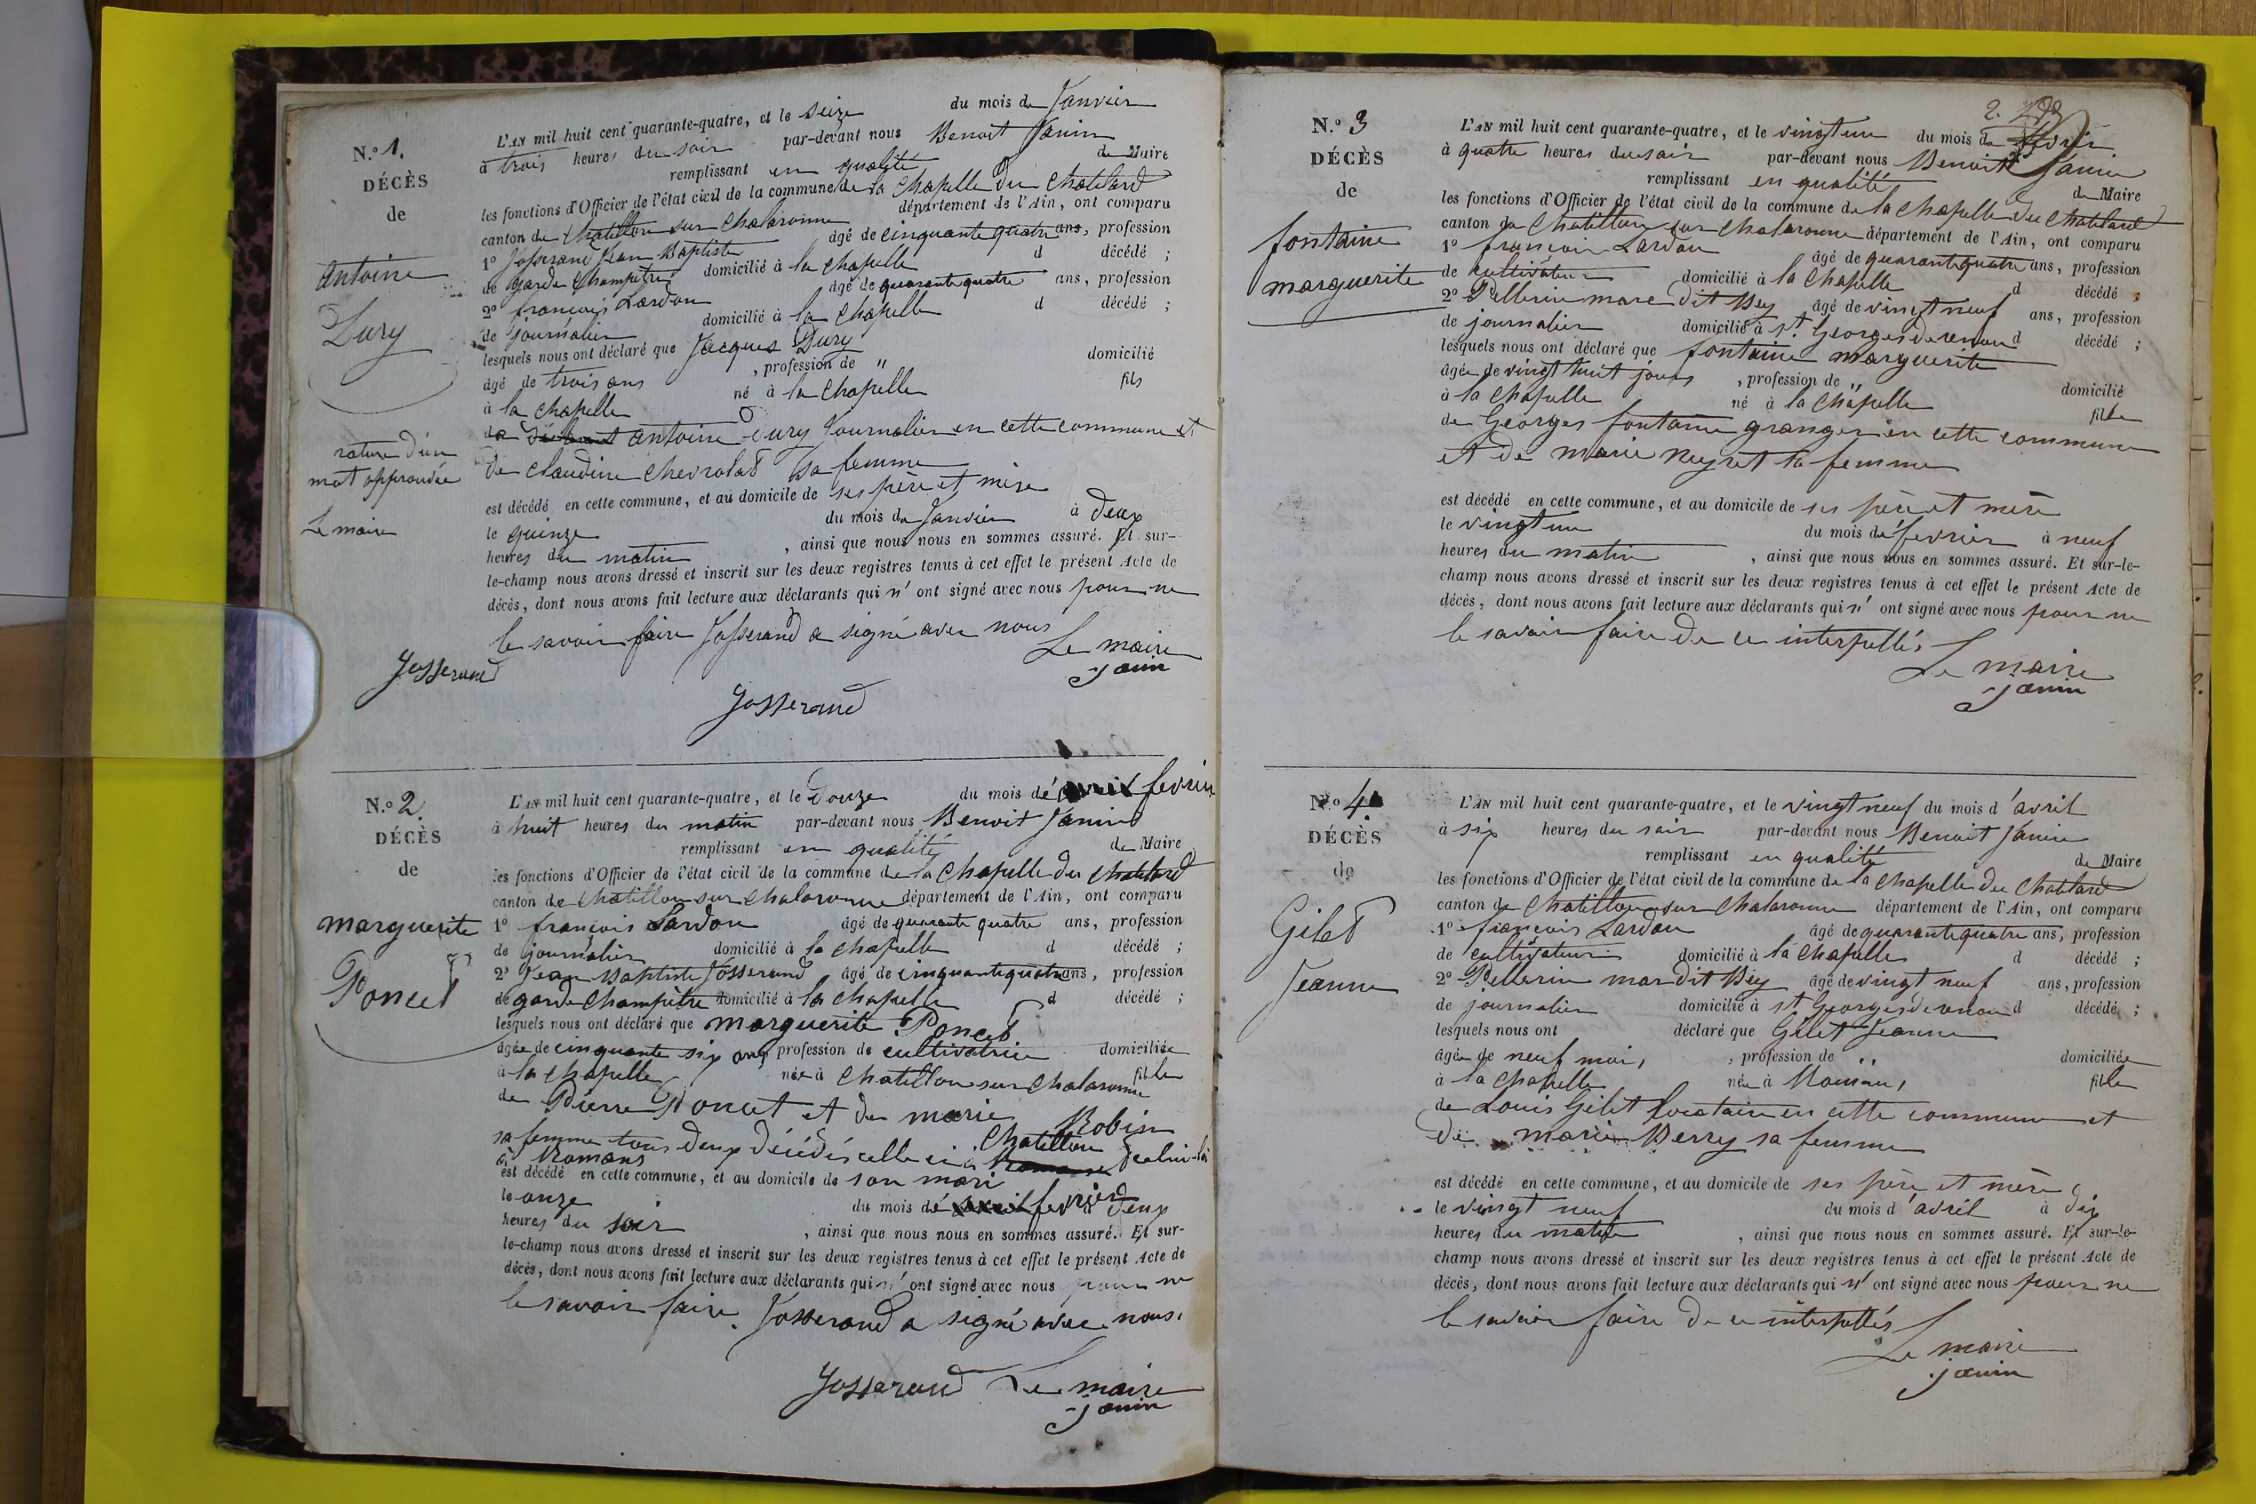 N.º 1.
DÉCÈS
de
antoine
Dury
rature d'un
mot approuvée
Le maire
Josserand
L'AN mil huit cent quarante-quatre, et le seize du mois de Janvier
à trois heures du soir par-devant nous Benoit Janin
remplissant en qualité de Maire
les fonctions d'Officier de l'état civil de la commune de la Chapelle du Chatelard
canton de Chatillon sur Chalaronne département de l'Ain, ont comparu
1º Josserand Jean Baptiste âgé de cinquante quatre ans, profession
de garde Champêtre domicilié à la Chapelle d décédé ;
2º françois Lardon âgé de quarante quatre ans, profession
de journalier domicilié à la Chapelle d décédé ;
lesquels nous ont déclaré que Jacques Dury
âgé de trois ans , profession de " domicilié
à la Chapelle né à la Chapelle fils
de antoine Dury Journalier en cette commune et
de Claudine Chevrolat sa femme
est décédé en cette commune, et au domicile de ses père et mère
le quinze du mois de Janvier à deux
heures du matin , ainsi que nous nous en sommes assuré. Et sur-
le-champ nous avons dressé et inscrit sur les deux registres tenus à cet effet le présent Acte de
décès, dont nous avons fait lecture aux déclarants qui n' ont signé avec nous pour ne
le savoir faire Josserand a signé avec nous
Le maire
Janin
Josserand
N.º 2.
DÉCÈS
de
marguerite
Poncet
L'AN mil huit cent quarante-quatre, et le Douze du mois de fevrier
à huit heures du matin par-devant nous Benoit Janin
remplissant en qualité de Maire
les fonctions d'Officier de l'état civil de la commune de la Chapelle du Chatelard
canton de Chatillon sur Chalaronne département de l'Ain, ont comparu
1º françois Lardon âgé de quarante quatre ans, profession
de journalier domicilié à la Chapelle d décédé ;
2º Jean Baptiste Josserand âgé de cinquante quatre ans, profession
de garde Champêtre domicilié à la Chapelle d décédé ;
lesquels nous ont déclaré que marguerite Poncet
âgée de cinquante six ans profession de cultivatrice domiciliée
à la Chapelle née à Chatillon sur Chalaronne fille
de Pierre Poncet et de marie Robin
sa femme tous deux décédés celle ci à Chatillon et celui-ci
à Romans
est décédé en cette commune, et au domicile de son mari
le onze du mois de fevrier à Deux
heures du soir , ainsi que nous nous en sommes assuré. Et sur-
le-champ nous avons dressé et inscrit sur les deux registres tenus à cet effet le présent Acte de
décès, dont nous avons fait lecture aux déclarants qui n' ont signé avec nous pour ne
le savoir faire. Josserand a signé avec nous.
Josserand Le maire
Janin
N.º 3
DÉCÈS
de
fontaine
marguerite
L'AN mil huit cent quarante-quatre, et le vingt un du mois de fevrier
à quatre heures du soir par-devant nous Benoit Janin
remplissant en qualité de Maire
les fonctions d'Officier de l'état civil de la commune de la Chapelle du Chatelard
canton de Chatillon sur Chalaronne département de l'Ain, ont comparu
1º françois Lardon âgé de quarante quatre ans, profession
de cultivateur domicilié à la Chapelle d décédé ;
2º Pellerin marc dit Bey âgé de vingt neuf ans, profession
de journalier domicilié à St. Georges de renon d décédé ;
lesquels nous ont déclaré que fontaine marguerite
âgée de vingt huit jours , profession de " domicilié
à la Chapelle né à la Chapelle fille
de Georges fontaine granger en cette commune
et de marie Neyret sa femme
est décédé en cette commune, et au domicile de ses père et mère
le vingt un du mois de fevrier à neuf
heures du matin , ainsi que nous nous en sommes assuré. Et sur-le-
champ nous avons dressé et inscrit sur les deux registres tenus à cet effet le présent Acte de
décès, dont nous avons fait lecture aux déclarants qui n' ont signé avec nous pour ne
le savoir faire de ce interpellés
Le maire
Janin
N.º 4
DÉCÈS
de
Gilet
Jeanne
L'AN mil huit cent quarante-quatre, et le vingt neuf du mois d'avril
à six heures du soir par-devant nous Benoit Janin
remplissant en qualité de Maire
les fonctions d'Officier de l'état civil de la commune de la Chapelle du Chatelard
canton de Chatillon sur Chalaronne département de l'Ain, ont comparu
1º françois Lardon âgé de quarante quatre ans, profession
de cultivateur domicilié à la Chapelle d décédé ;
2º Pellerin marc dit Bey âgé de vingt neuf ans, profession
de journalier domicilié à St Georges de renon d décédé ;
lesquels nous ont déclaré que Gilet Jeanne
âgée de neuf mois, , profession de " domiciliée
à la Chapelle née à Romans, fille
de Louis Gilet locataire en cette commune et
de marie Berry sa femme
est décédé en cette commune, et au domicile de ses père et mère
le vingt neuf du mois d'avril à dix
heures du matin , ainsi que nous nous en sommes assuré. Et sur-le-
champ nous avons dressé et inscrit sur les deux registres tenus à cet effet le présent Acte de
décès, dont nous avons fait lecture aux déclarants qui n' ont signé avec nous pour ne
le savoir faire de ce interpellés
Le maire
Janin